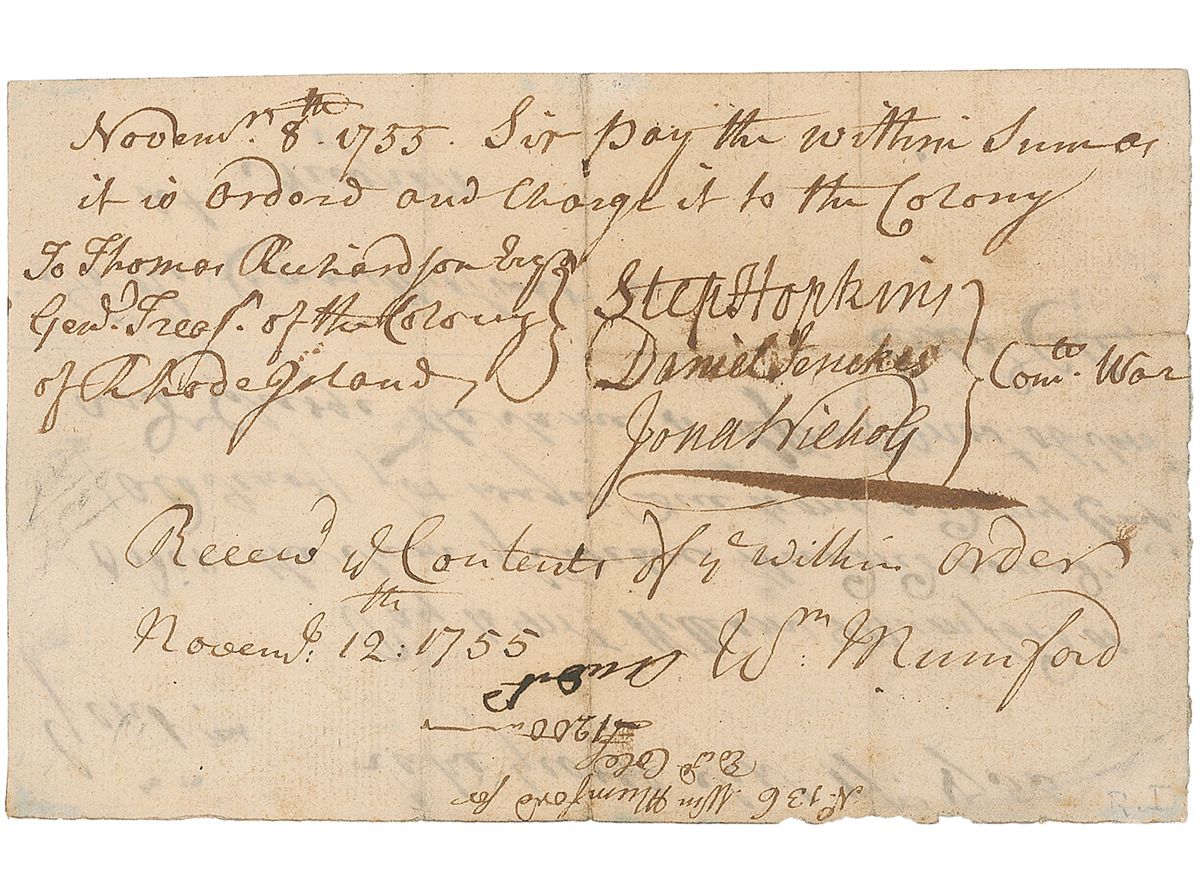 Novemr. 8th. 1755. Sir pay the within Sum as
it is orderd and Charge it to the Colony
To Thomas Richardson Esqr
Genl. Treasr. of the Colony
of Rhode Island,
Step Hopkins
Daniel Jenckes
Jona Nichols
Comte. War
Receivd ye Contents of ye within order
Novembr: 12th: 1755
Wm: Mumford
No. 136 Wm Mumford for
£1200